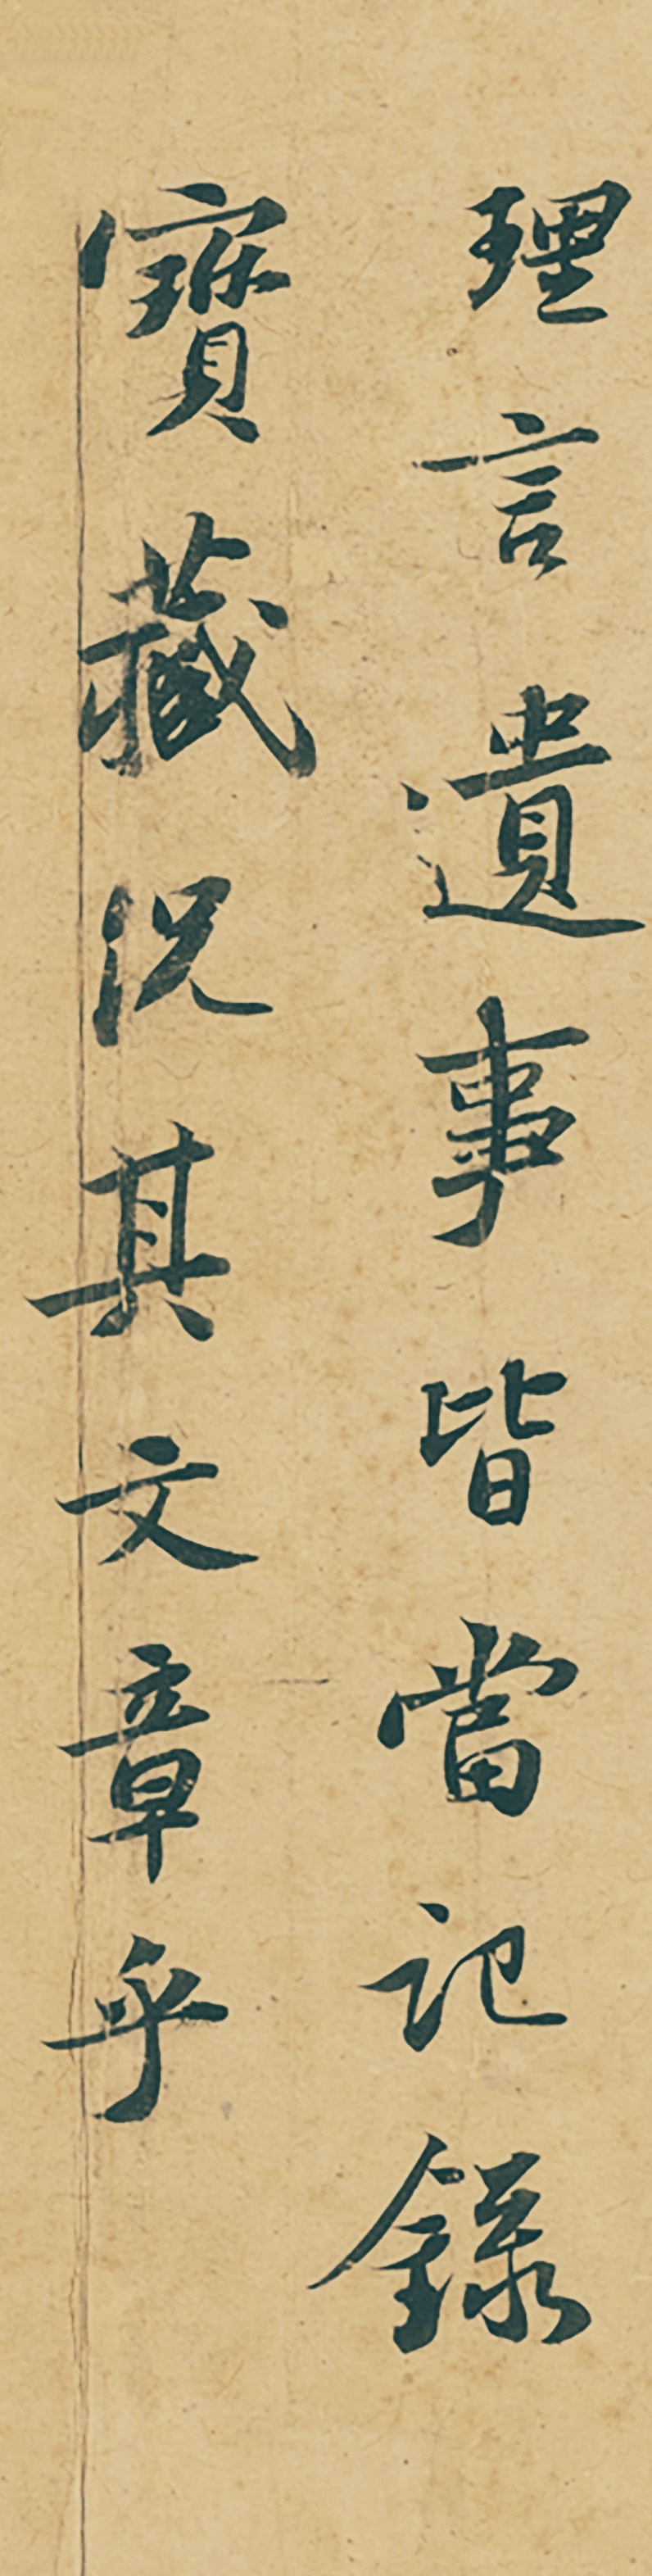 理言遺事皆當記錄
寶藏況其文章乎